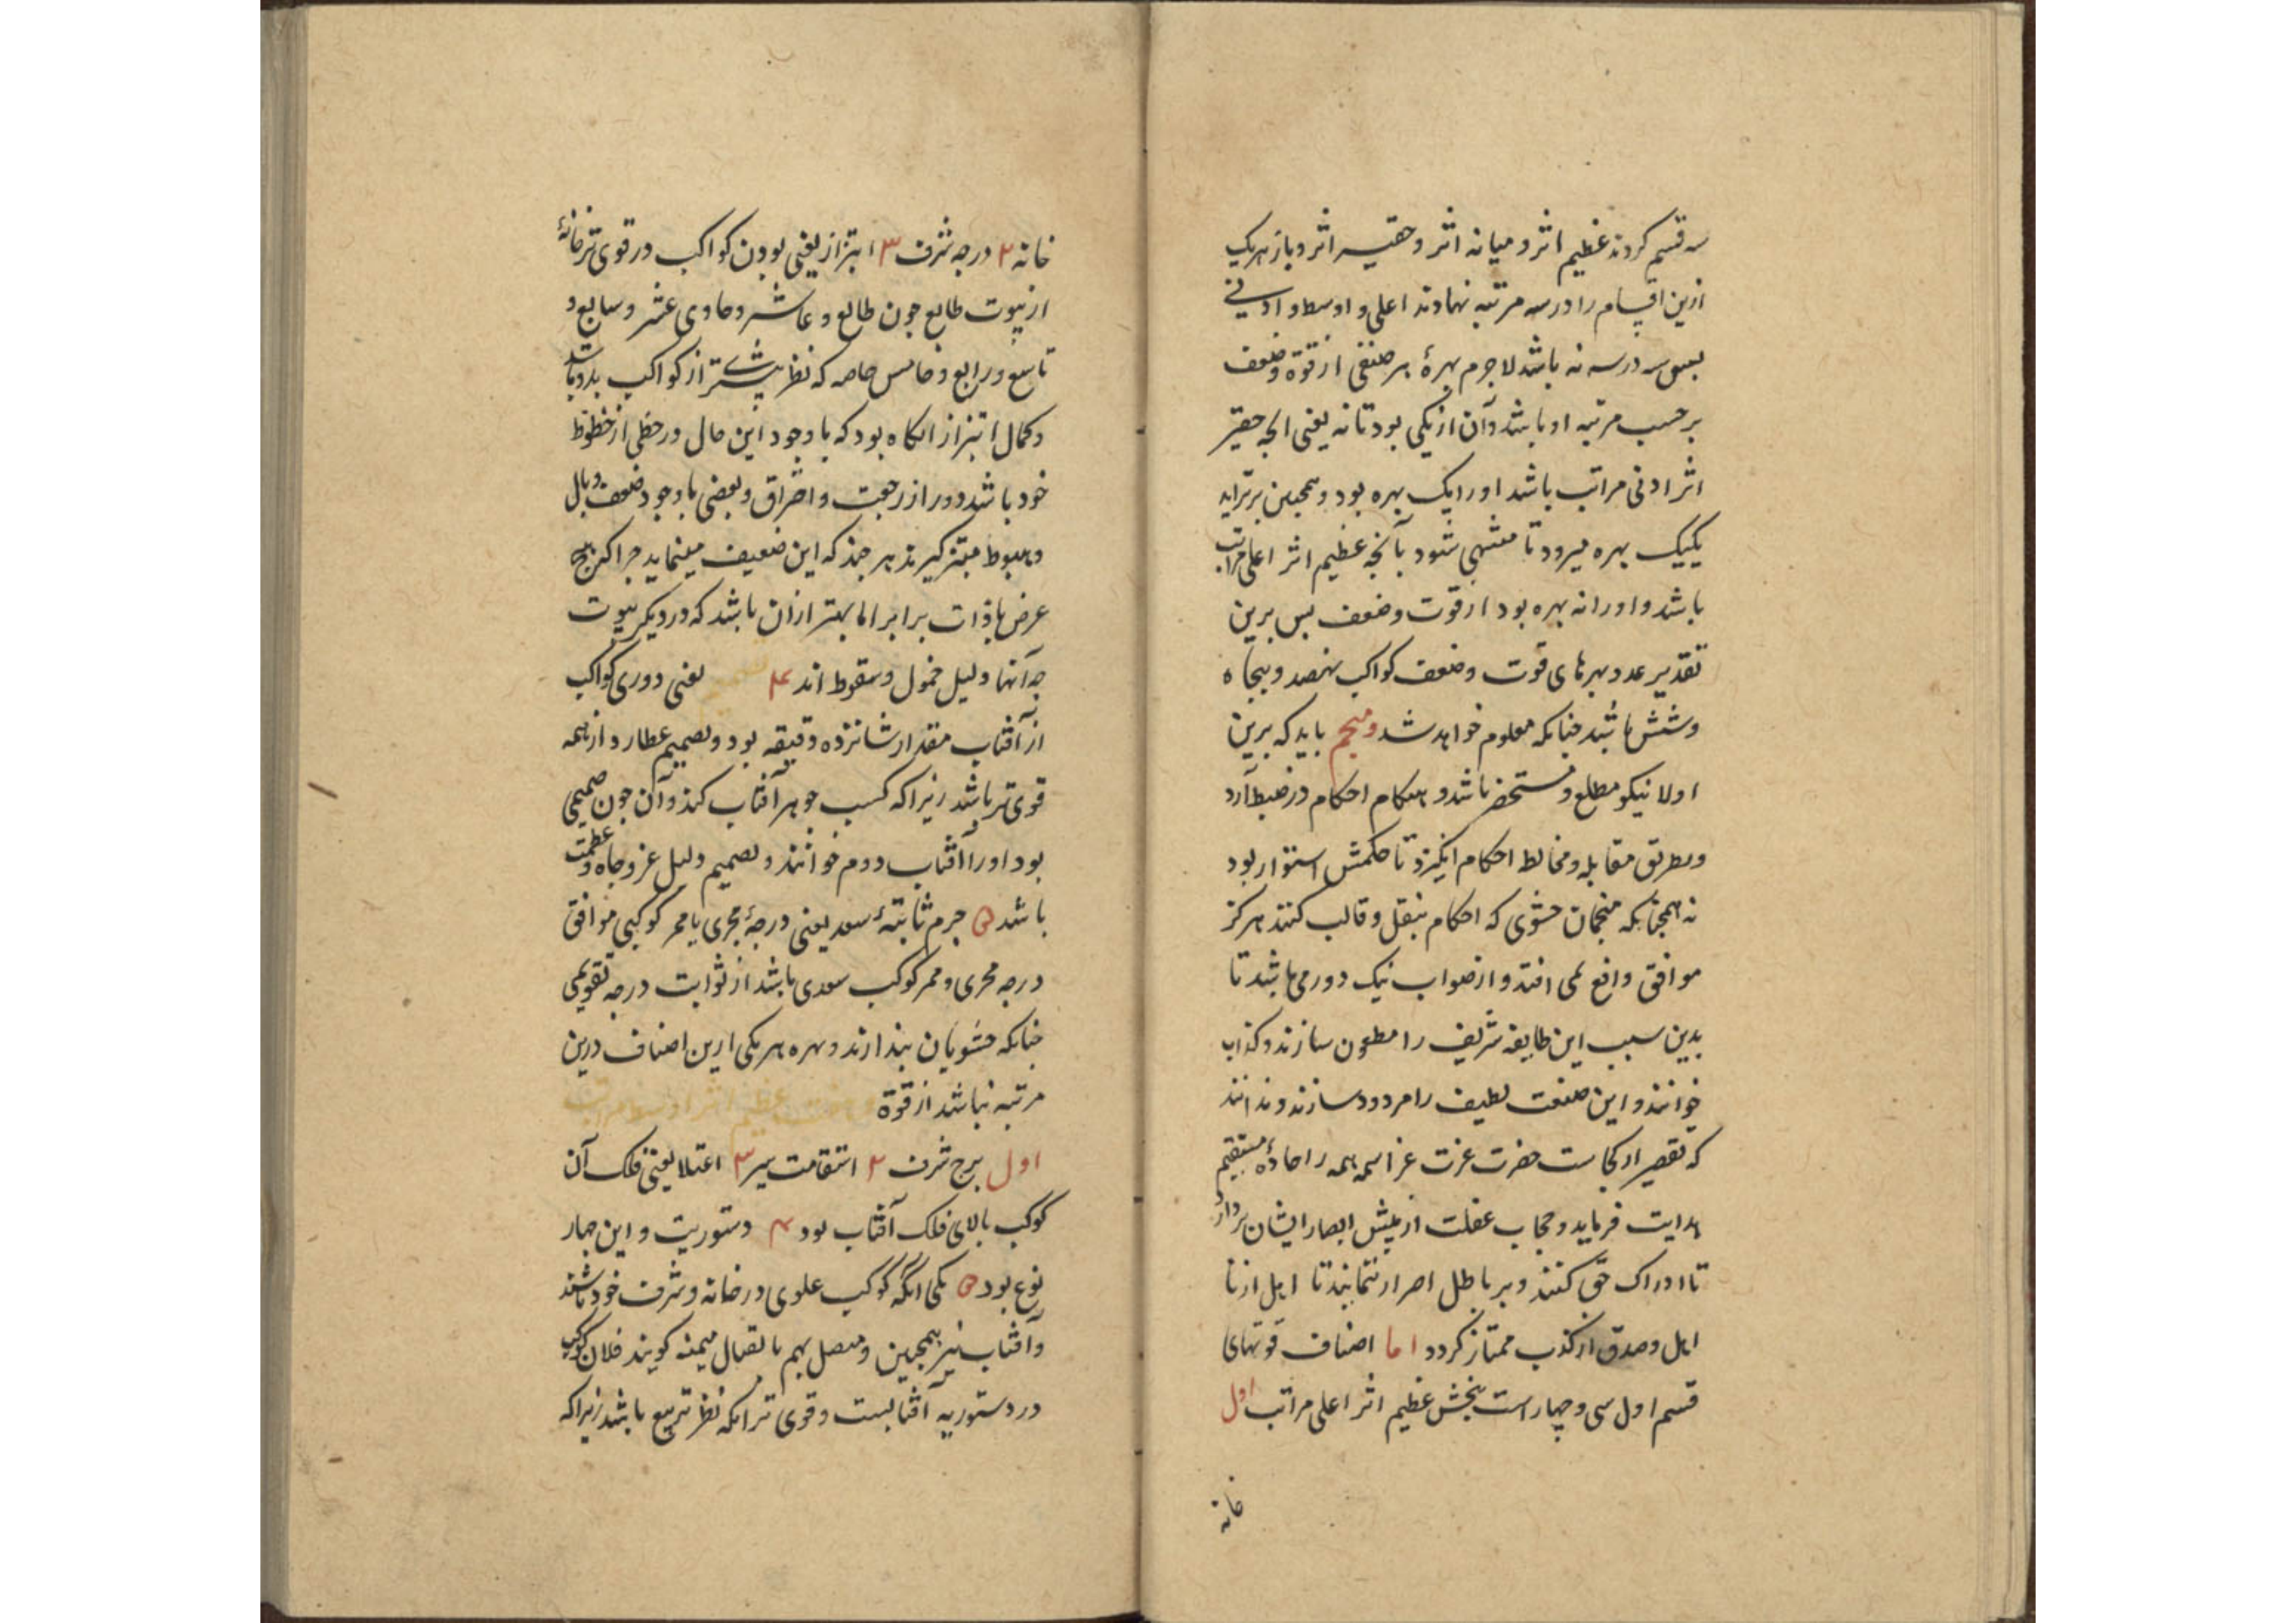 سه قسم کردند عظیم اثر و میانه اثر و حقیر اثر و باز هریک
ازین اقسام را در سه مرتبه نهادند اعلی و اوسط و ادنی
بس سه در سه نه باشد لاجرم بهرهٔ هر صنفی از قوة و ضعف
بر حسب مرتبه او باشد و آن از یکی بود تا نه یعنی انجه حقیر
اثر ادنی مراتب باشد او را یک بهره بود و همچنین برتر آید
یکیک بهره میرود تا منتهی شود بآنچه عظیم اثر اعلی مراتب
باشد و او را نه بهره بود از قوت و ضعف بس برین
تقدیر عدد بهرهای قوت و ضعف کواکب نهصد و پنجاه
و شش باشد جنانکه معلوم خواهد شد و منجم باید که برین
اولا نیکو مطلع و مستحضر باشد و هنکام احکام در ضبط آرد
و بطریق مقابله و مخالط احکام انکیزد تا حکمش استوار بود
نه همچنانکه منجمان حشوی که احکام بنقل و قالب کنند هرکز
موافق واقع نمی افتد و از صواب نیک دور می باشد تا
بدین سبب این طایفه شریف را مطعون سازند و کذاب
خوانند و این صنعت لطیف را مردود سازند و ندانند
که تقصیر از کجاست حضرت عزت عز اسمه همه را جادهٔ مستقیم
هدایت فرماید و حجاب غفلت از پیش ابصار ایشان بردارد
تا ادراک حق کنند و بر باطل اصرار ننمایند تا اهل از نا
اهل و صدق از کذب ممتاز کردد اما اصناف قوتهای
قسم اول سی و چهار است بخش عظیم اثر اعلی مراتب اول
خانه
خانه ۲ درجه شرف ۳ ابتزاز یعنی بودن کواکب در قوی تر خانهٔ
از بیوت طالع جون طالع و عاشر و حادی عشر و سابع و
تاسع و رابع و خامس خاصه که نظر بیشتر از کواکب بدو باشد
و کمال ابتزاز انکاه بود که با وجود این حال در حظی از حظوظ
خود باشد و دور از رجعت و احتراق و بعضی با وجود ضعف وبال
و هبوط مبتز کیرند هر چند که این ضعیف مینماید چرا که رنج
عرض با ذات برابر اما بهتر ازان باشد که در دیکر بیوت
چه آنها دلیل خمول و سقوط اند ۴ تصمیم یعنی دوری کواکب
از آفتاب مقدار شانزده دقیقه بود و تصمیم عطارد از همه
قوی تر باشد زیرا که کسب جوهر آفتاب کند و آن جون صمیمی
بود او را آفتاب دوم خوانند و تصمیم دلیل عز و جاه و عظمت
باشد ۵ جرم ثابتهٔ سعد یعنی درجهٔ مجری یا ممر کوکبی موافق
درجه مجری و ممر کوکب سعدی باشد از ثوابت درجه تقویمی
جنانکه حشویان پندارند و بهره هر یکی ازین اصناف درین
مرتبه نه باشد از قوة عظیم اثر اوسط مراتب
اول برج شرف ۲ استقامت سیر ۳ اعتلا یعنی فلک آن
کوکب بالای فلک آفتاب بود ۴ دستوریت و این چهار
نوع بود یکی انکه کوکب علوی در خانه و شرف خود باشند
و آفتاب نیز همچنین و متصل بهم باتصال میمنه کویند فلان کوکب
در دستوریه آفتابست و قوی تر انکه نظر تربیع باشد زیرا که